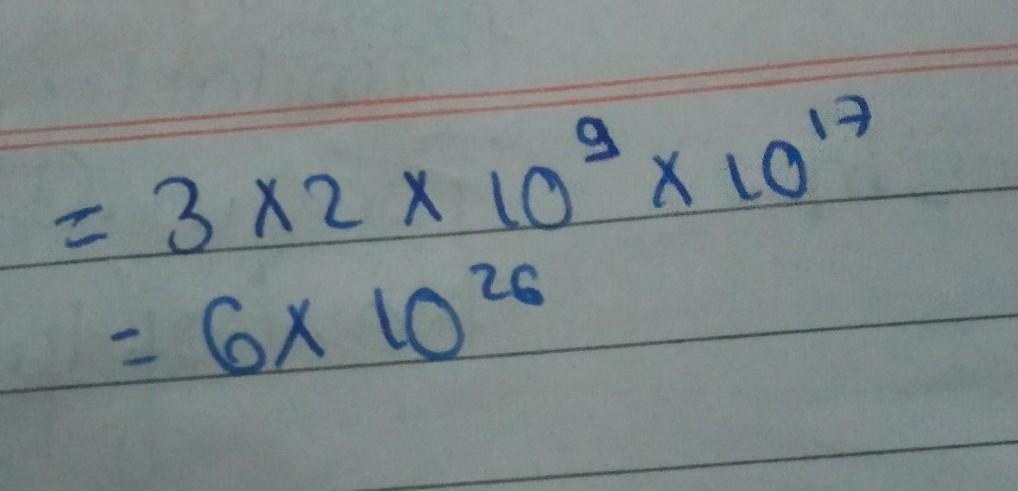 = 3 × 2 × 10⁹ × 10¹⁷
= 6 × 10²⁶